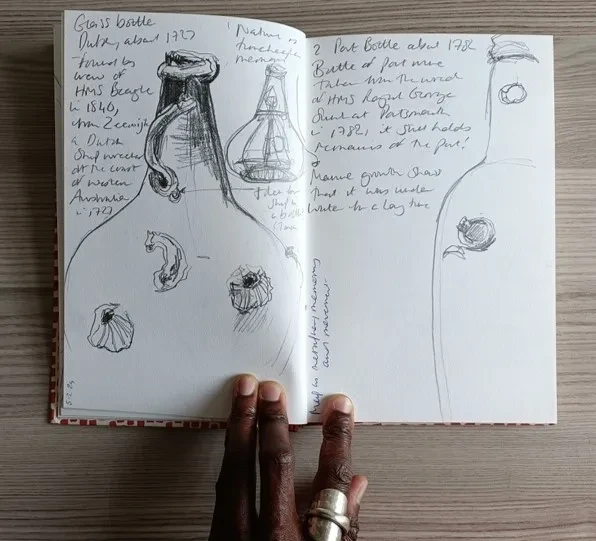 Glass bottle
Dutch, about 1727
found by
crew of
HMS Beagle
in 1840,
from Zeewijk
a Dutch
Ship wrecked
off the coast
of western
Australia
in 1727
Nature
memory
Idea for
Ship in
a bottle
5.2.24
2 Port Bottle about 1782
Bottle of Port wine
Taken from the wreck
of HMS Royal George
Sunk at Portsmouth
in 1782, it still holds
remains of the port!
Marine growth shows
that it was under
water for a long time
memory
and movement